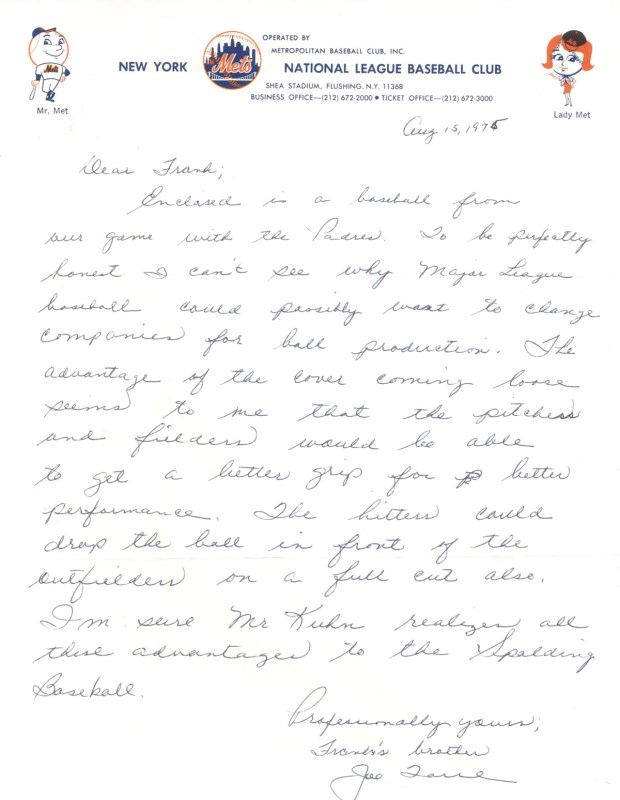 OPERATED BY
METROPOLITAN BASEBALL CLUB, INC.
NEW YORK Mets NATIONAL LEAGUE BASEBALL CLUB
SHEA STADIUM, FLUSHING, N.Y. 11368
BUSINESS OFFICE—(212) 672-2000 • TICKET OFFICE—(212) 672-3000
Mets
Mr. Met
Lady Met
Aug 15, 1975
Dear Frank;
Enclosed is a baseball from
our game with the Padres. To be perfectly
honest I can't see why Major League
baseball could possibly want to change
companies for ball production. The
advantage of the cover coming loose
seems to me that the pitchers
and fielders would be able
to get a better grip for better
performance. The hitters could
drop the ball in front of the
outfielders on a full cut also.
I'm sure Mr Kuhn realizes all
these advantages to the Spalding
Baseball.
Professionally yours,
Frank's brother
Joe Torre